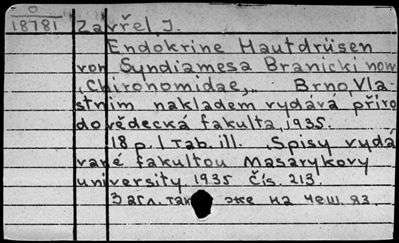 0
18781 Zavřel, J.
Endokrine Hautdrüsen
von Syndiamesa Branicki now
„Chironomidae„. Brno, Vla-
stním nakladem vydáva přiro
dovědecká fakulta, 1935.
18 p. 1 tab. ill. „Spisy vydá
vané fakultou Masarykovy
university. 1935 Čís. 213.
Загл. так же на чеш. яз.